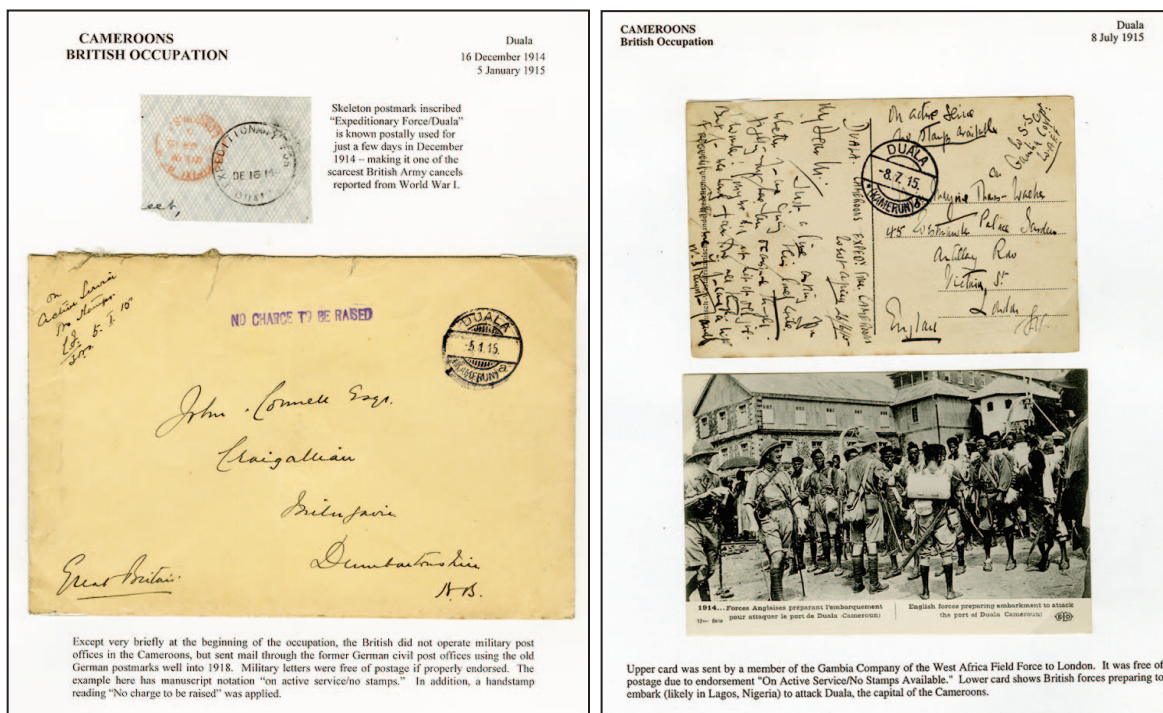 CAMEROONS
BRITISH OCCUPATION
Duala
16 December 1914
5 January 1915
EXPEDITIONARY FOR
DE 16 14
DUALA
eet,
Skeleton postmark inscribed
“Expeditionary Force/Duala”
is known postally used for
just a few days in December
1914 – making it one of the
scarcest British Army cancels
reported from World War I.
on
Active Service
No Stamps.
5. 1. 15
NO CHARGE TO BE RAISED
DUALA
-5.1.15.
(KAMERUN)
John Connell Esqr.
Craigallian
Milngavie
Dumbartonshire
N.B.
Great Britain.
Except very briefly at the beginning of the occupation, the British did not operate military post
offices in the Cameroons, but sent mail through the former German civil post offices using the old
German postmarks well into 1918. Military letters were free of postage if properly endorsed. The
example here has manuscript notation “on active service/no stamps.” In addition, a handstamp
reading “No charge to be raised” was applied.
CAMEROONS
British Occupation
Duala
8 July 1915
On active Service
No Stamps available
Gambia Coy
WAFF
DUALA
-8.7.15.
(KAMERUN)
My Dear
Just a line
DUALA. CAMEROONS EXPED.
45 Westminster Palace Gardens
Artillery Row
Victoria St.
London
England
1914... Forces Anglaises préparant l'embarquement
pour attaquer le port de Duala (Cameroun)
English forces preparing embarkment to attack
the port of Duala (Cameroun)
Upper card was sent by a member of the Gambia Company of the West Africa Field Force to London. It was free of
postage due to endorsement "On Active Service/No Stamps Available." Lower card shows British forces preparing to
embark (likely in Lagos, Nigeria) to attack Duala, the capital of the Cameroons.